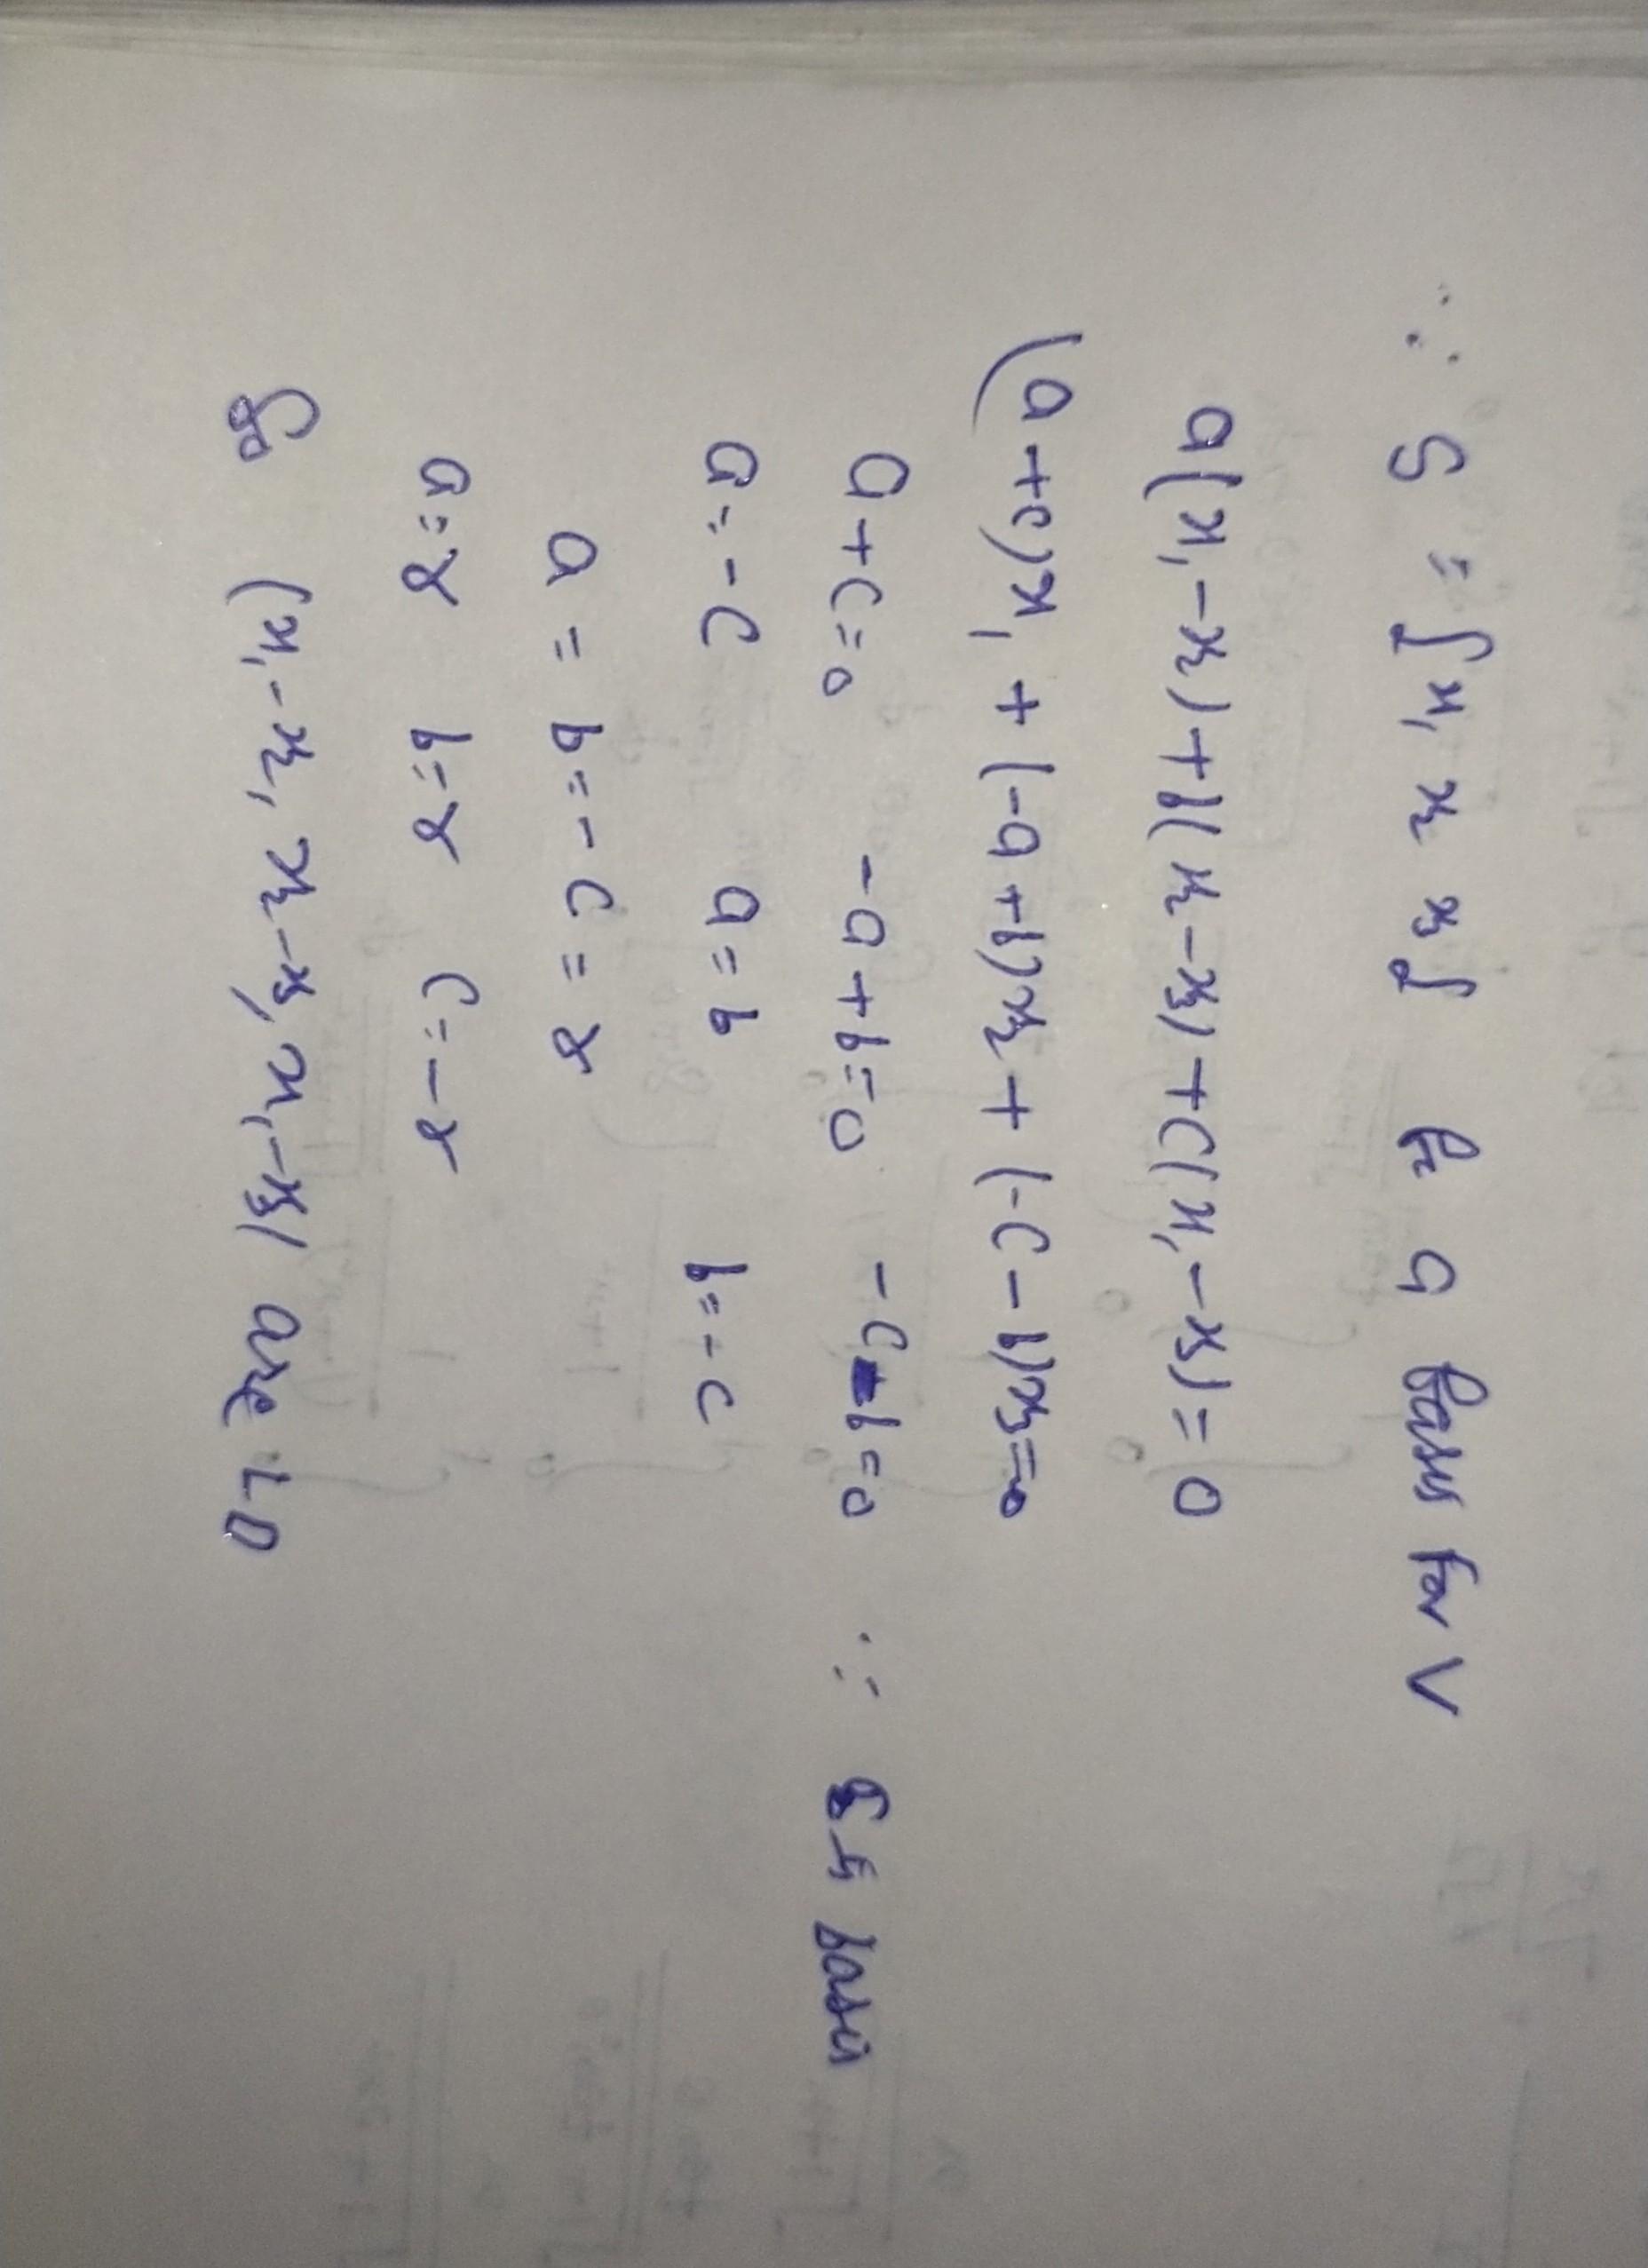 ∴ S = {x₁ x₂ x₃} is a basis for V
a(x₁-x₂)+b(x₂-x₃)+c(x₁-x₃)=0
(a+c)x₁ + (-a+b)x₂ + (-c-b)x₃=0
a+c=0 -a+b=0 -c-b=0 ∴ S is basis
a=-c a=b b=-c
a = b=-c=
a= b= c=-
so (x₁-x₂, x₂-x₃, x₁-x₃) are L.D